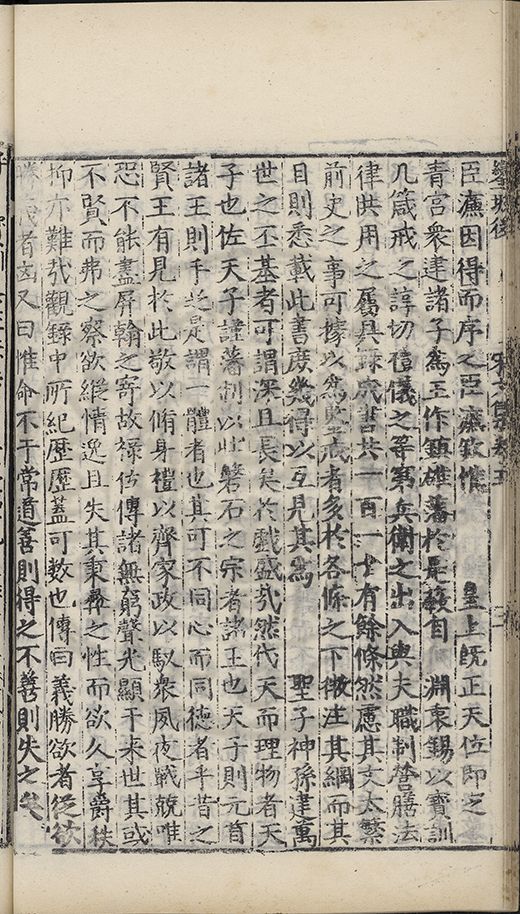 臣濂因得而序之臣濂欽惟　皇上旣正天位卽之
青宮衆建諸子爲王作鎮雄藩於是簸自　淵衷錫以寶訓
凡箴戒之諄切禮儀之等第兵衛之出入與夫職制營膳法
律供用之屬具錄成書共一百一十有餘條然慮其文太繁
前史之事可據以爲鑒戒者多於各條之下徵注其綱而其
目則悉載此書庶幾得以互見其爲　聖子神孫建萬
世之丕基者可謂深且長矣於戲盛哉然代天而理物者天
子也佐天子謹藩制以壯磐石之宗者諸王也天子則元首
諸王則手足是謂一體者也其可不同心而同德者乎昔之
賢王有見於此敬以脩身禮以齊家政以馭衆夙夜戰兢唯
恐不能盡屏翰之寄故祿位傳諸無窮聲光顯于来世其或
不賢而弗之察欲縱情逸且失其秉彝之性而欲久享爵秩
抑亦難哉觀錄中所紀歷歷蓋可數也傳曰義勝欲者從欲
勝義者凶又曰惟命不于常道善則得之不善則失之矣